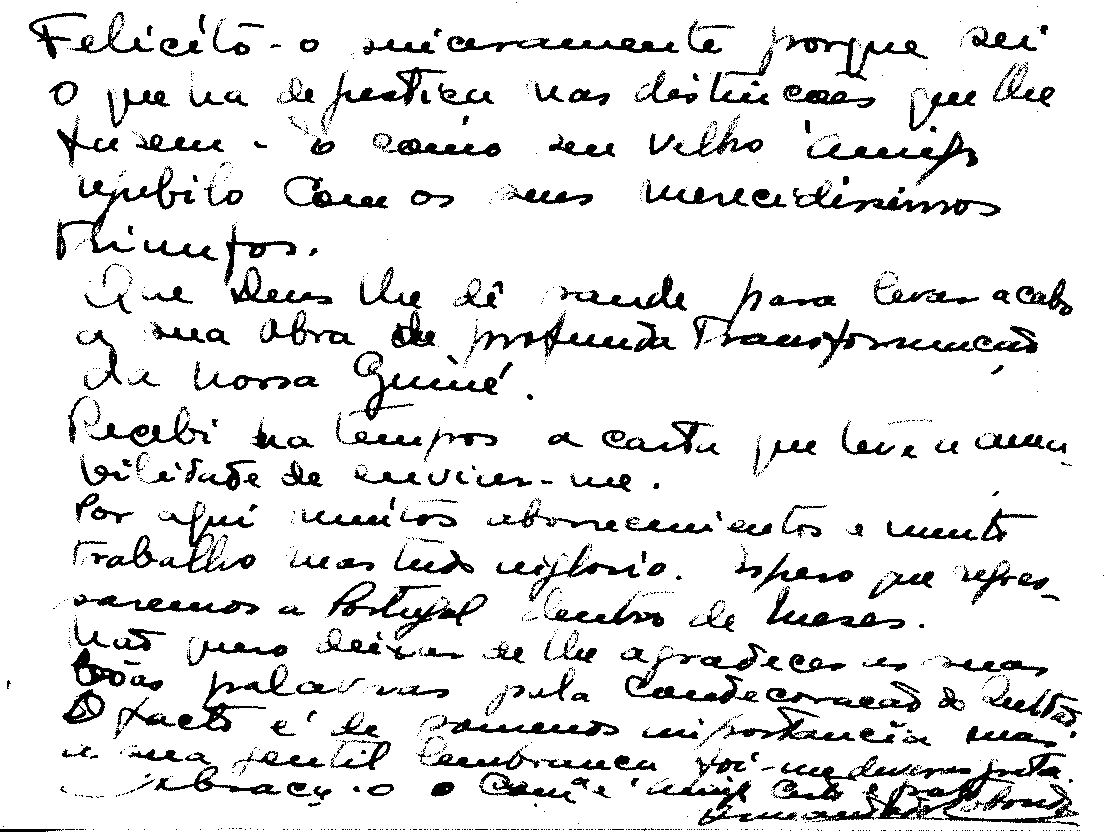 Felicito-o sinceramente porque sei
o que ha de justiça nas distinções que lhe
fazem - e como seu velho amigo
rejubilo com os seus merecidissimos
triunfos.
Que Deus lhe dê saude para levar a cabo
a sua obra de profunda transformação
da nossa Guiné.
Recebi ha tempos a carta que teve a ama-
bilidade de enviar-me.
Por aqui muitos aborrecimentos e muito
trabalho mas tudo inglorio. Espero que regres-
saremos a Portugal dentro de meses.
Não quero deixar de lhe agradecer as suas
boas palavras pela condecoração do Sultão.
O facto é de somenos importancia mas
a sua gentil lembrança foi-me deveras grata.
Abraça-o o Camª e amigo certo e grato